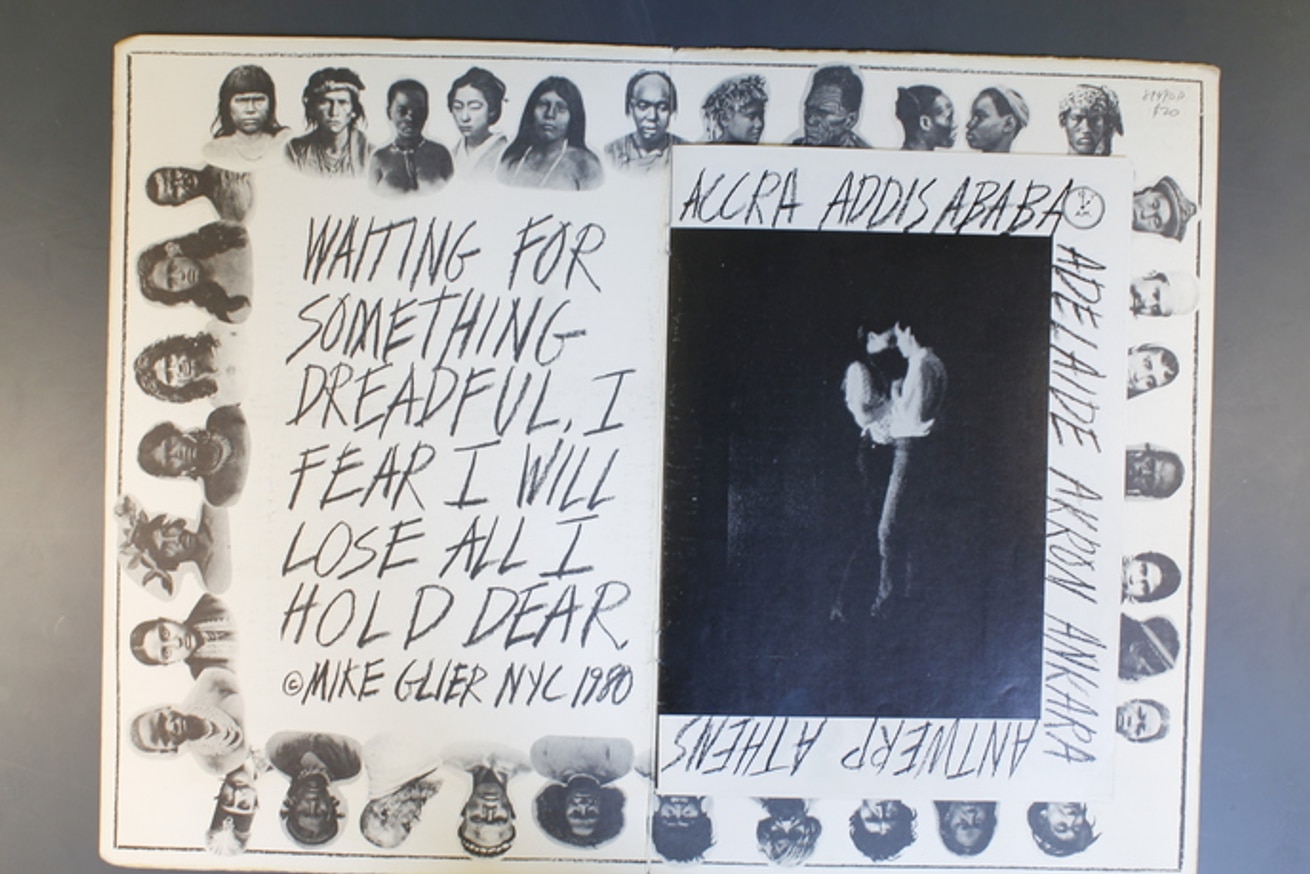 WAITING FOR
SOMETHING
DREADFUL, I
FEAR I WILL
LOSE ALL I
HOLD DEAR.
©MIKE GLIER NYC 1980
ACCRA ADDIS ABABA
ADELAIDE AKRON ANKARA
ANTWERP ATHENS
$20